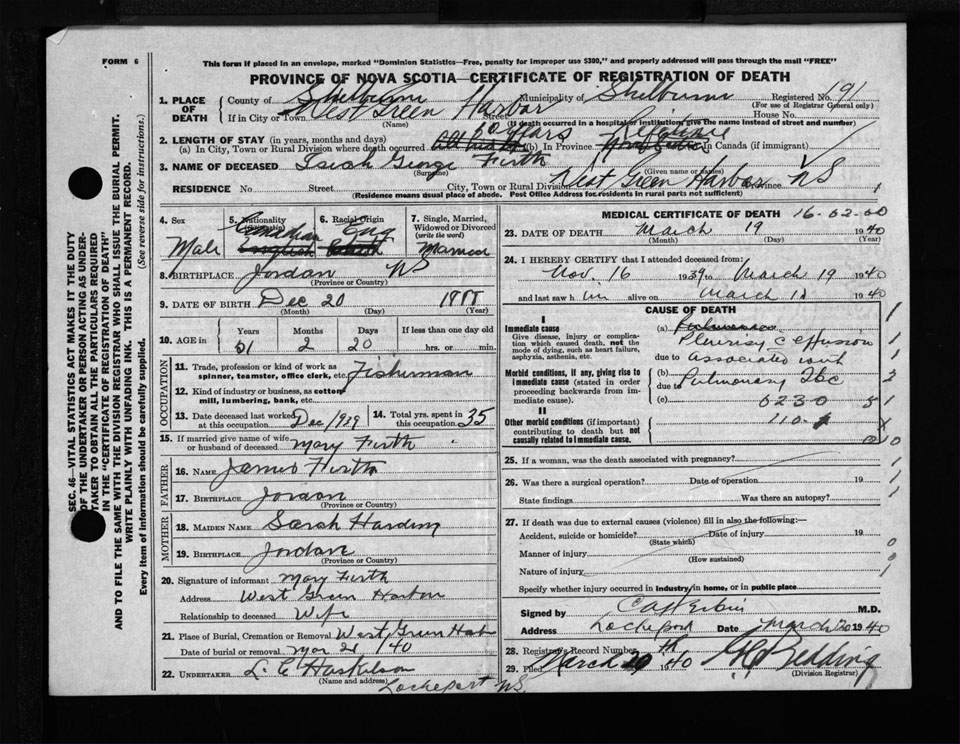 FORM 6
This form if placed in an envelope, marked "Dominion Statistics—Free, penalty for improper use $300," and properly addressed will pass through the mail "FREE"
PROVINCE OF NOVA SCOTIA—CERTIFICATE OF REGISTRATION OF DEATH
1. PLACE OF DEATH
County of Shelburne Municipality of Shelburne Registered No. 691
(For use of Registrar General only)
If in City or Town West Green Harbor Street House No.
(Name) (If death occurred in a hospital or institution, give the name instead of street and number)
2. LENGTH OF STAY (in years, months and days) 50 years
(a) In City, Town or Rural Division where death occurred all his life (b) In Province In Canada (if immigrant)
3. NAME OF DECEASED Isiah George Firth
(Surname) (Given name or names)
RESIDENCE No. Street City, Town or Rural Division West Green Harbor Province NS
(Residence means usual place of abode. Post Office Address for residents in rural parts not sufficient)
4. Sex Male
5. Nationality (Citizenship) Canadian English
6. Racial Origin Eng
7. Single, Married, Widowed or Divorced (write the word) Married
8. BIRTHPLACE Jordan NS
(Province or Country)
9. DATE OF BIRTH Dec 20 1888
(Month) (Day) (Year)
10. AGE in Years Months Days If less than one day old
51 2 20 hrs. or min.
OCCUPATION
11. Trade, profession or kind of work as spinner, teamster, office clerk, etc. Fisherman
12. Kind of industry or business, as cotton mill, lumbering, bank, etc.
13. Date deceased last worked at this occupation. Dec 1939
14. Total yrs. spent in this occupation. 35
15. If married give name of wife or husband of deceased Mary Firth
FATHER
16. NAME James Firth
17. BIRTHPLACE Jordan
(Province or Country)
MOTHER
18. MAIDEN NAME Sarah Harding
19. BIRTHPLACE Jordan
(Province or Country)
20. Signature of informant Mary Firth
Address West Green Harbor
Relationship to deceased Wife
21. Place of Burial, Cremation or Removal West Green Harbor
Date of burial or removal Mar 21, /40
22. UNDERTAKER
(Name and address)
Lockeport NS
MEDICAL CERTIFICATE OF DEATH 16-02-00
23. DATE OF DEATH March 19 1940
(Month) (Day) (Year)
24. I HEREBY CERTIFY that I attended deceased from:
Nov. 16 1939 to March 19 1940
and last saw him alive on March 1940
CAUSE OF DEATH
I
Immediate cause
Give disease, injury or complication which caused death, not the mode of dying, such as heart failure, asphyxia, asthenia, etc.
(a) Pleurisy c effusion
due to associated with
Morbid conditions, if any, giving rise to immediate cause (stated in order proceeding backwards from immediate cause).
(b)
due to Pulmonary Tbc
(c) 0230
II
Other morbid conditions (if important) contributing to death but not causally related to immediate cause.
110-
25. If a woman, was the death associated with pregnancy?
26. Was there a surgical operation? Date of operation 19
State findings Was there an autopsy?
27. If death was due to external causes (violence) fill in also the following:—
Accident, suicide or homicide? Date of injury 19
(State which)
Manner of injury
(How sustained)
Nature of injury
Specify whether injury occurred in industry, in home, or in public place
Signed by M.D.
Address Lockeport Date March 20 1940
28. Registrar's Record Number
29. Filed March 20th 1940
(Division Registrar)
SEC. 46—VITAL STATISTICS ACT MAKES IT THE DUTY
OF THE UNDERTAKER OR PERSON ACTING AS UNDERTAKER TO OBTAIN ALL THE PARTICULARS REQUIRED
IN THE "CERTIFICATE OF REGISTRATION OF DEATH"
AND TO FILE THE SAME WITH THE DIVISION REGISTRAR WHO SHALL ISSUE THE BURIAL PERMIT.
WRITE PLAINLY WITH UNFADING INK. THIS IS A PERMANENT RECORD.
Every item of information should be carefully supplied. (See reverse side for instructions.)